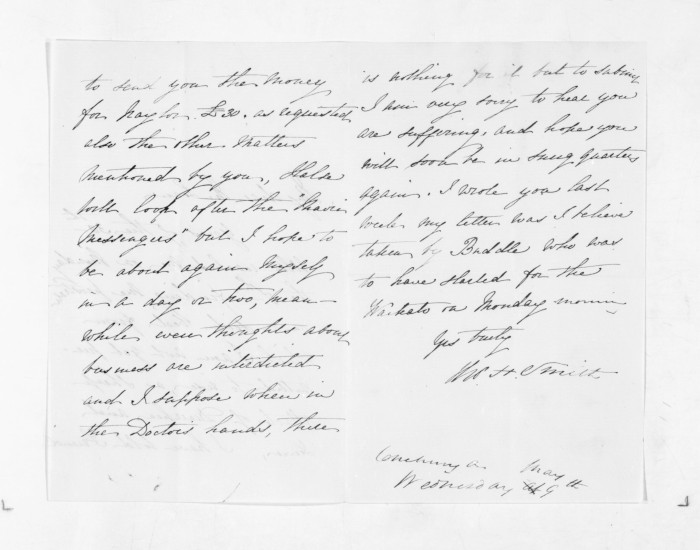 to send you the money
for Naylor £30. as requested
also the other matters
mentioned by you, Halse
will look after the "Maori
Messenger" but I hope to
be about again myself
in a day or two, mean-
while even thoughts about
business are interdicted
and I suppose when in
the Doctors hands, there
is nothing for it but to submit
I am very sorry to hear you
are suffering, and hope you
will soon be in snug quarters
again. I wrote you last
week my letter was I believe
taken by Buddle who was
to have started for the
Waikato on Monday mornin
Yrs truly
W. H. Smith
May
Wednesday 9th